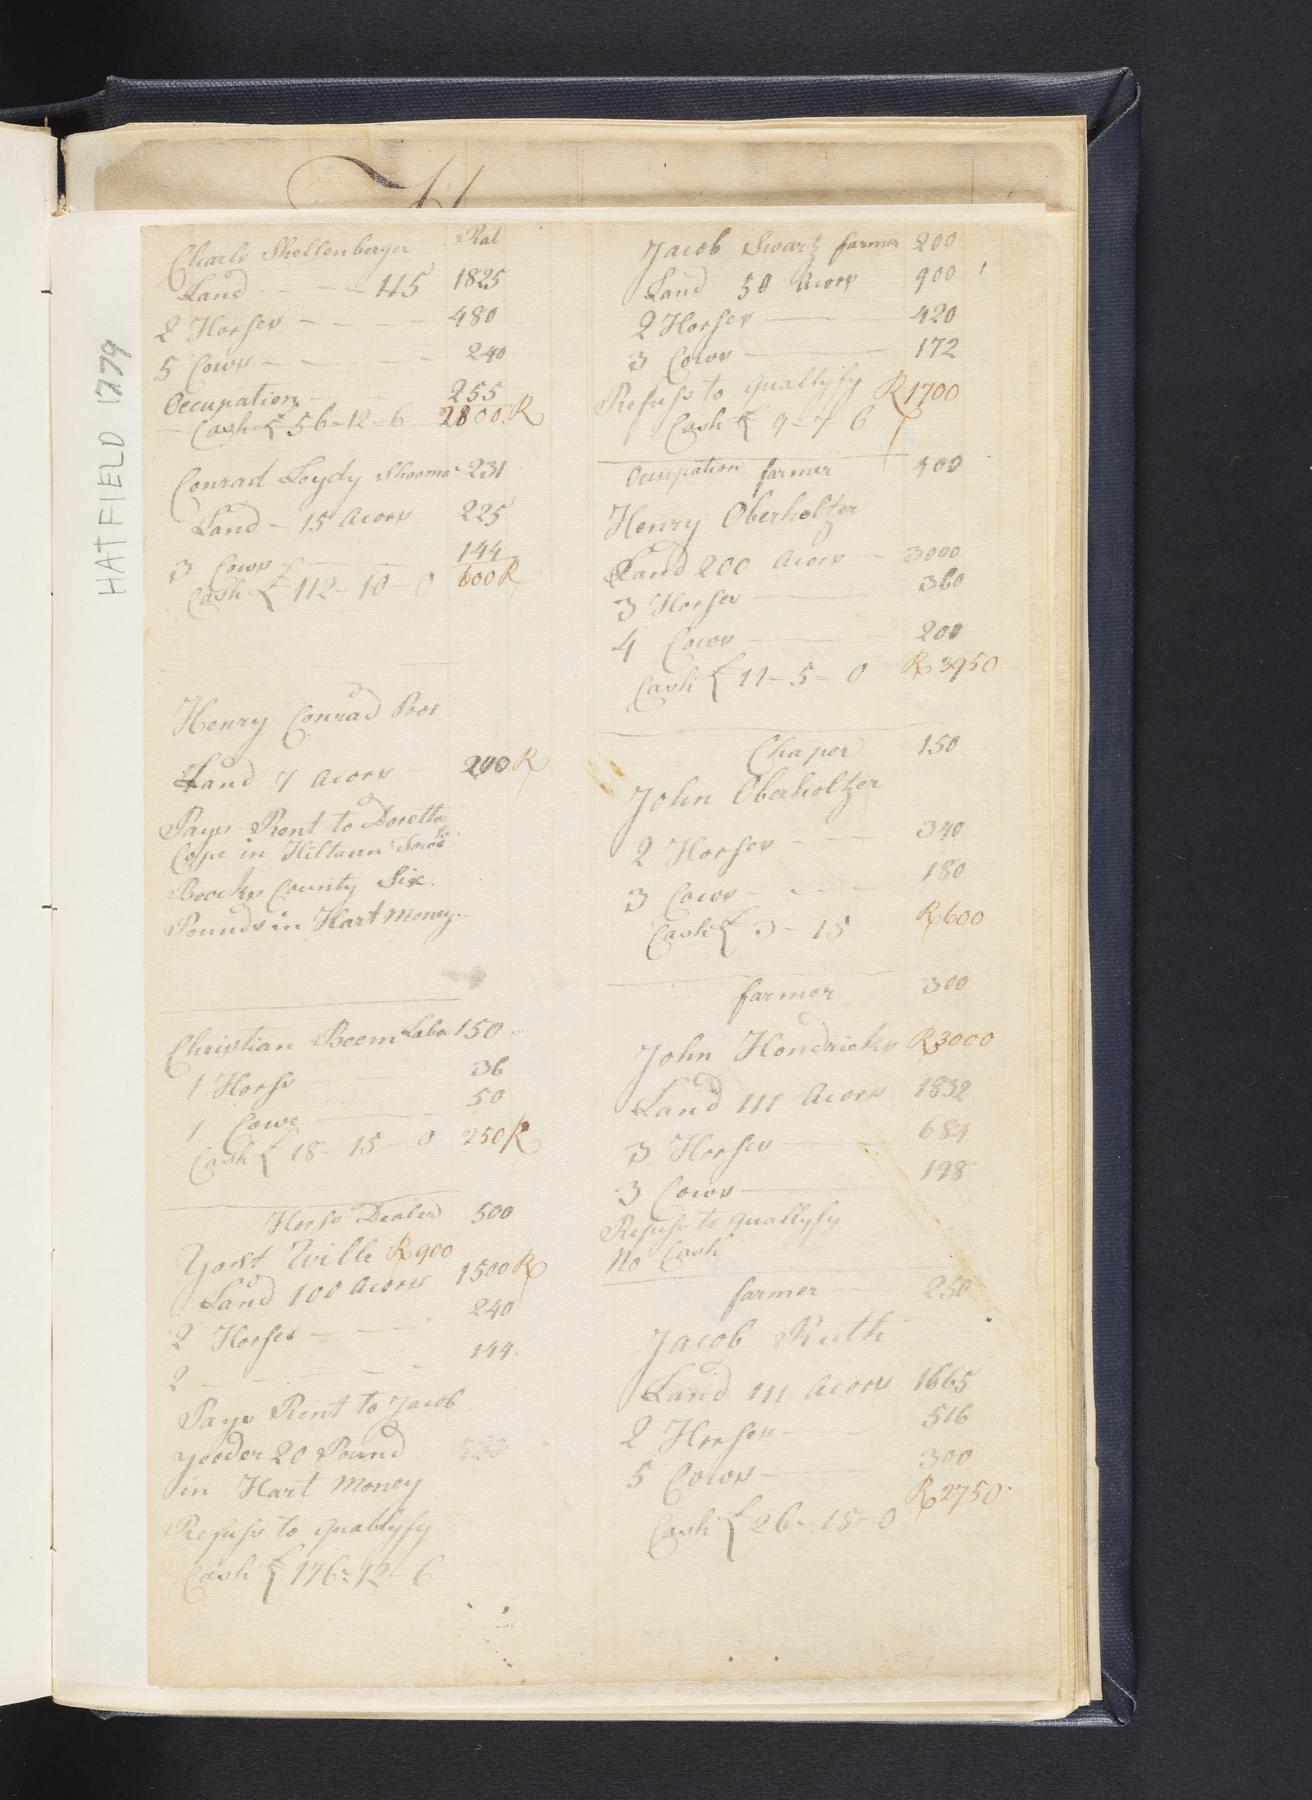 HATFIELD 1779
Charls Shellenberger Rat
Land 115 1825
2 Horses 480
5 Cows 240
Occupation 255
Cash £ 56-12-6 2800 R
Conrad Loydy Shooma 231
Land - 15 Acors 225
3 Cows 144
Cash £ 112-10-0 600 R
Henry Conrad Poor
Land 7 Acors 200 R
Pays Rent to Doretta
Cope in Hiltaun
Boocks County Six
Pounds in Hart Money
Christian Beem Labo 150
1 Horse 36
1 Cowe 50
Cash £ 18-15-0 250 R
Horse Dealer 500
Yost Wille R 900
Land 100 Acors 1500 R
2 Horses 240
2 144
Pays Rent to Jacob
Yooder 20 Pound
in Hart Money
Refuse to quallyfy
Cash £ 176-12-6
Jacob Swartz farmer 200
Land 50 Acors 900
2 Horses 420
3 Cows 172
Refuse to quallyfy R 1700
Cash £ 9-7-6
Occupation farmer 400
Henry Oberholtzer
Land 200 Acors 3000
3 Horses 360
4 Cows 200
Cash £ 11-5-0 R 3950
Chaper 150
John Oberholtzer
2 Horses 340
3 Cows 180
Cash £ 3-15 R 600
farmer 300
John Hendricks R 3000
Land 111 Acors 1832
3 Horses 684
3 Cows 198
Refuse to quallyfy
No Cash
farmer 250
Jacob Ruth
Land 111 Acors 1665
2 Horses 516
5 Cows 300
Cash £ 26-15-0 R 2750